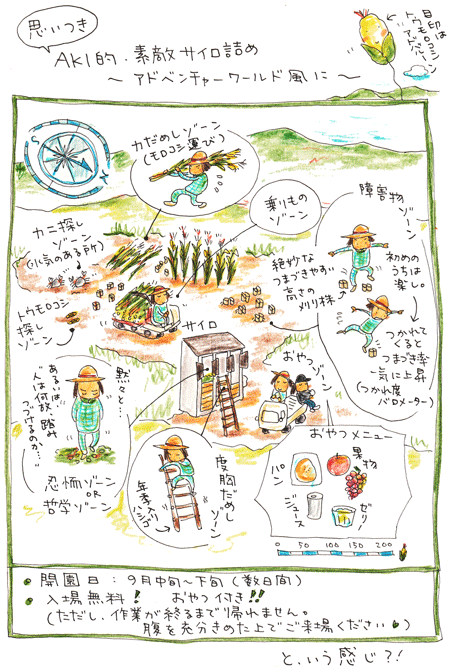 思いつき
AKI的・素敵サイロ詰め
〜アドベンチャーワールド風に〜
目印は
トウモロコシ
アドバルーン
S
N
力だめしゾーン
(モロコシ運び)
乗りもの
ゾーン
障害物
ゾーン
カニ探し
ゾーン
(湿気のある所)
トウモロコシ
探し
ゾーン
絶妙な
つまづきやすい
高さの
メリケン株
初めの
うちは
楽し。
つかれて
くると
つまづき率
一気に上昇
(つかれ度
バロメーター)
サイロ
おやつ
ゾーン
黙々と…
あるいは
人は何故、踏み
つづけるのか…
恐怖ゾーン
OR
哲学ゾーン
度胸だめし
ゾーン
年季入り
ハシゴ
おやつメニュー
パン
果物
ジュース
ゼリー
0 50 100 150 200
開園日:9月中旬〜下旬(数日間)
入場無料! おやつ付き!!
(ただし、作業が終るまで帰れません。
腹を充分きめた上でご来場ください)
という感じ?!